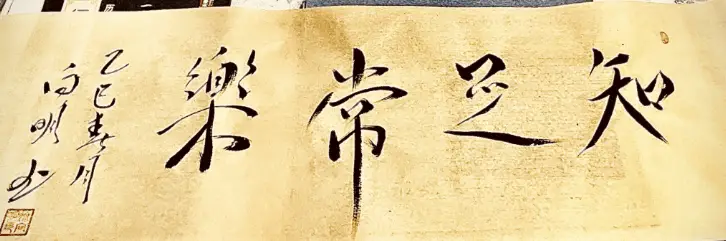 知足常樂
乙巳春月
向明书